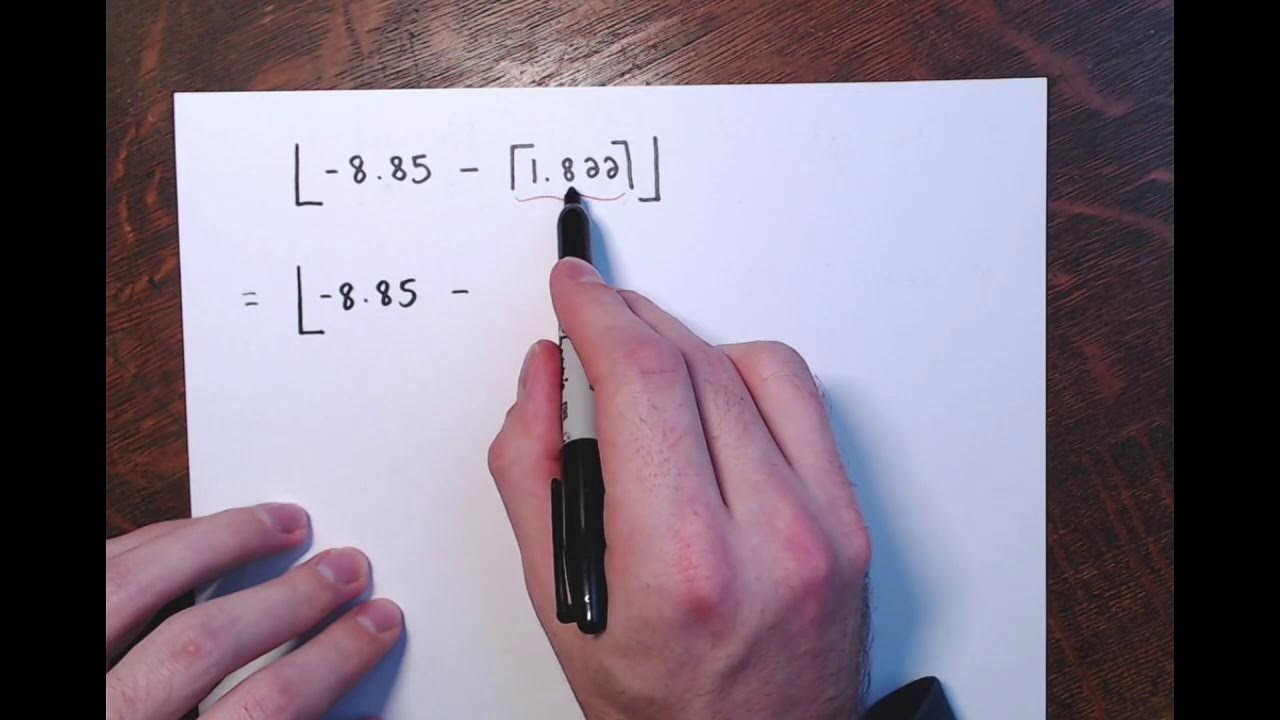 ⌊-8.85 - ⌈1.822⌉⌋
= ⌊-8.85 -